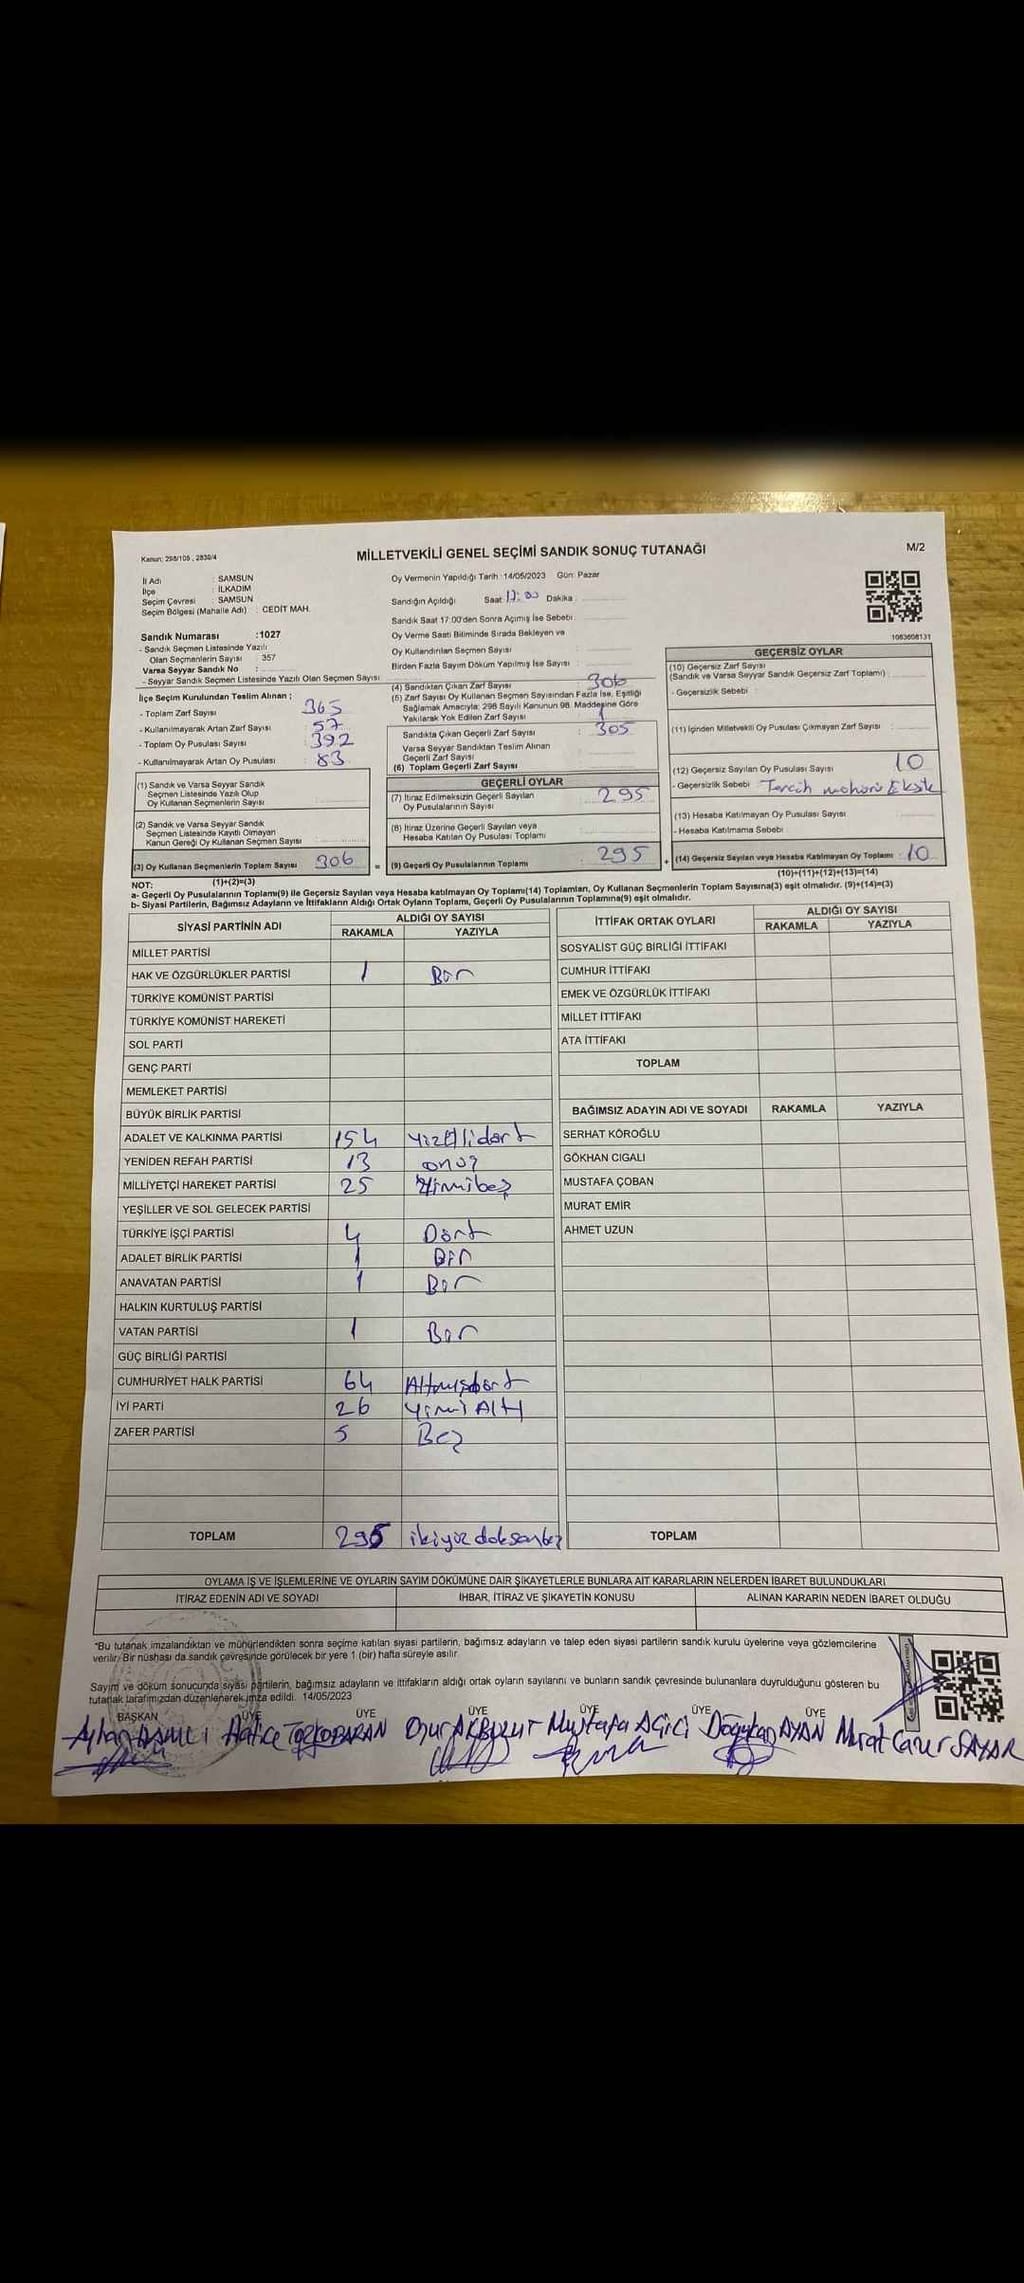 Kanun: 298/105 , 2839/4
MİLLETVEKİLİ GENEL SEÇİMİ SANDIK SONUÇ TUTANAĞI
M/2
İl Adı : SAMSUN
İlçe : İLKADIM
Seçim Çevresi : SAMSUN
Seçim Bölgesi (Mahalle Adı) : CEDİT MAH.
Sandık Numarası :1027
- Sandık Seçmen Listesinde Yazılı
Olan Seçmenlerin Sayısı : 357
Varsa Seyyar Sandık No :
- Seyyar Sandık Seçmen Listesinde Yazılı Olan Seçmen Sayısı
Oy Vermenin Yapıldığı Tarih :14/05/2023 Gün: Pazar
Sandığın Açıldığı Saat 17:00 Dakika :
Sandık Saat 17.00'den Sonra Açılmış İse Sebebi :
Oy Verme Saati Bitiminde Sırada Bekleyen ve
Oy Kullandırılan Seçmen Sayısı :
Birden Fazla Sayım Döküm Yapılmış İse Sayısı :
1063608131
İlçe Seçim Kurulundan Teslim Alınan ;
- Toplam Zarf Sayısı : 365
- Kullanılmayarak Artan Zarf Sayısı : 57
- Toplam Oy Pusulası Sayısı : 392
- Kullanılmayarak Artan Oy Pusulası : 83
(1) Sandık ve Varsa Seyyar Sandık
Seçmen Listesinde Yazılı Olup
Oy Kullanan Seçmenlerin Sayısı
(2) Sandık ve Varsa Seyyar Sandık
Seçmen Listesinde Kayıtlı Olmayan
Kanun Gereği Oy Kullanan Seçmen Sayısı
(3) Oy Kullanan Seçmenlerin Toplam Sayısı 306 =
(1)+(2)=(3)
(4) Sandıktan Çıkan Zarf Sayısı : 306
(5) Zarf Sayısı Oy Kullanan Seçmen Sayısından Fazla İse, Eşitliği
Sağlamak Amacıyla; 298 Sayılı Kanunun 98. Maddesine Göre
Yakılarak Yok Edilen Zarf Sayısı : 1
Sandıkta Çıkan Geçerli Zarf Sayısı : 305
Varsa Seyyar Sandıktan Teslim Alınan
Geçerli Zarf Sayısı
(6) Toplam Geçerli Zarf Sayısı
GEÇERLİ OYLAR
(7) İtiraz Edilmeksizin Geçerli Sayılan
Oy Pusulalarının Sayısı : 295
(8) İtiraz Üzerine Geçerli Sayılan veya
Hesaba Katılan Oy Pusulası Toplamı
(9) Geçerli Oy Pusulalarının Toplamı : 295 +
GEÇERSİZ OYLAR
(10) Geçersiz Zarf Sayısı
(Sandık ve Varsa Seyyar Sandık Geçersiz Zarf Toplamı) :
- Geçersizlik Sebebi :
(11) İçinden Milletvekili Oy Pusulası Çıkmayan Zarf Sayısı :
(12) Geçersiz Sayılan Oy Pusulası Sayısı : 10
- Geçersizlik Sebebi : Tercih mührü Eksik
(13) Hesaba Katılmayan Oy Pusulası Sayısı :
- Hesaba Katılmama Sebebi :
(14) Geçersiz Sayılan veya Hesaba Katılmayan Oy Toplamı : 10
(10)+(11)+(12)+(13)=(14)
NOT:
a- Geçerli Oy Pusulalarının Toplamı(9) ile Geçersiz Sayılan veya Hesaba katılmayan Oy Toplamı(14) Toplamları, Oy Kullanan Seçmenlerin Toplam Sayısına(3) eşit olmalıdır. (9)+(14)=(3)
b- Siyasi Partilerin, Bağımsız Adayların ve İttifakların Aldığı Ortak Oyların Toplamı, Geçerli Oy Pusulalarının Toplamına(9) eşit olmalıdır.
SİYASİ PARTİNİN ADI ALDIĞI OY SAYISI
RAKAMLA YAZIYLA
MİLLET PARTİSİ
HAK VE ÖZGÜRLÜKLER PARTİSİ 1 Bir
TÜRKİYE KOMÜNİST PARTİSİ
TÜRKİYE KOMÜNİST HAREKETİ
SOL PARTİ
GENÇ PARTİ
MEMLEKET PARTİSİ
BÜYÜK BİRLİK PARTİSİ
ADALET VE KALKINMA PARTİSİ 154 Yüzellidört
YENİDEN REFAH PARTİSİ 13 onüç
MİLLİYETÇİ HAREKET PARTİSİ 25 Yirmibeş
YEŞİLLER VE SOL GELECEK PARTİSİ
TÜRKİYE İŞÇİ PARTİSİ 4 Dört
ADALET BİRLİK PARTİSİ 1 Bir
ANAVATAN PARTİSİ 1 Bir
HALKIN KURTULUŞ PARTİSİ
VATAN PARTİSİ 1 Bir
GÜÇ BİRLİĞİ PARTİSİ
CUMHURİYET HALK PARTİSİ 64 Altmışdört
İYİ PARTİ 26 Yirmi Altı
ZAFER PARTİSİ 5 Beş
TOPLAM 295 ikiyüz doksanbeş
İTTİFAK ORTAK OYLARI ALDIĞI OY SAYISI
RAKAMLA YAZIYLA
SOSYALİST GÜÇ BİRLİĞİ İTTİFAKI
CUMHUR İTTİFAKI
EMEK VE ÖZGÜRLÜK İTTİFAKI
MİLLET İTTİFAKI
ATA İTTİFAKI
TOPLAM
BAĞIMSIZ ADAYIN ADI VE SOYADI RAKAMLA YAZIYLA
SERHAT KÖROĞLU
GÖKHAN CIGALI
MUSTAFA ÇOBAN
MURAT EMİR
AHMET UZUN
TOPLAM
OYLAMA İŞ VE İŞLEMLERİNE VE OYLARIN SAYIM DÖKÜMÜNE DAİR ŞİKAYETLERLE BUNLARA AİT KARARLARIN NELERDEN İBARET BULUNDUKLARI
İTİRAZ EDENİN ADI VE SOYADI İHBAR, İTİRAZ VE ŞİKAYETİN KONUSU ALINAN KARARIN NEDEN İBARET OLDUĞU
*Bu tutanak imzalandıktan ve mühürlendikten sonra seçime katılan siyasi partilerin, bağımsız adayların ve talep eden siyasi partilerin sandık kurulu üyelerine veya gözlemcilerine
verilir. Bir nüshası da sandık çevresinde görülecek bir yere 1 (bir) hafta süreyle asılır.
Sayım ve döküm sonucunda siyasi partilerin, bağımsız adayların ve ittifakların aldığı ortak oyların sayılarını ve bunların sandık çevresinde bulunanlara duyrulduğunu gösteren bu
tutanak tarafımızdan düzenlenerek imza edildi. 14/05/2023
BAŞKAN ÜYE ÜYE ÜYE ÜYE ÜYE ÜYE
Hatice TOPKOPARAN Onur AKBULUT Mustafa AGİCİ Doğukan AYAN Murat Caner SAYAR